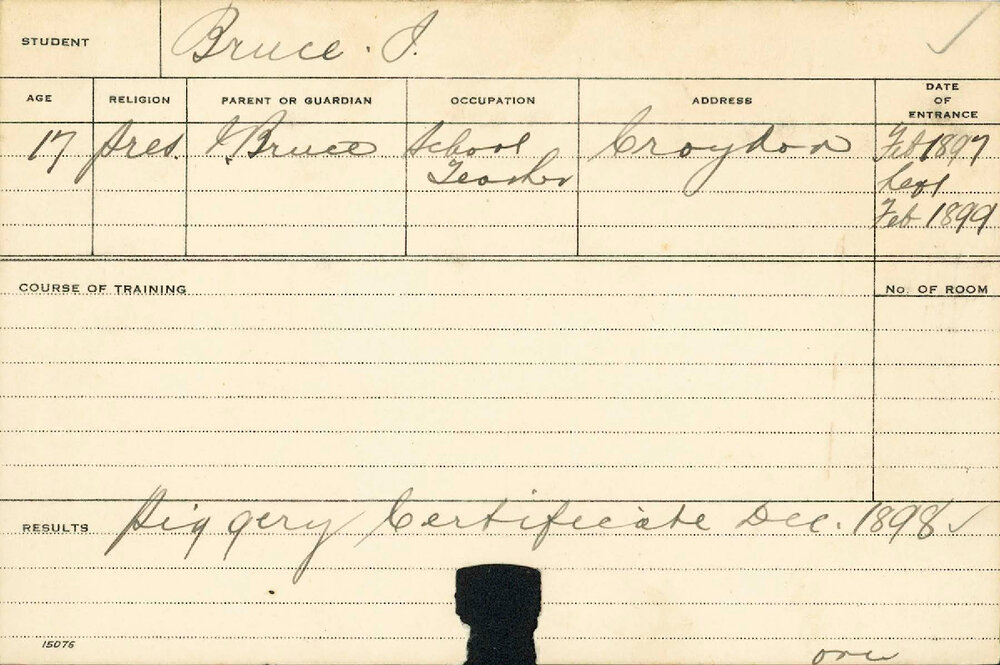 STUDENT Bruce. J. ✓
AGE RELIGION PARENT OR GUARDIAN OCCUPATION ADDRESS DATE OF ENTRANCE
17 Pres. J. Bruce School Teacher Croydon Feb 1897
Left
Feb 1899
COURSE OF TRAINING No. OF ROOM
RESULTS Piggery Certificate Dec. 1898 ✓
15076